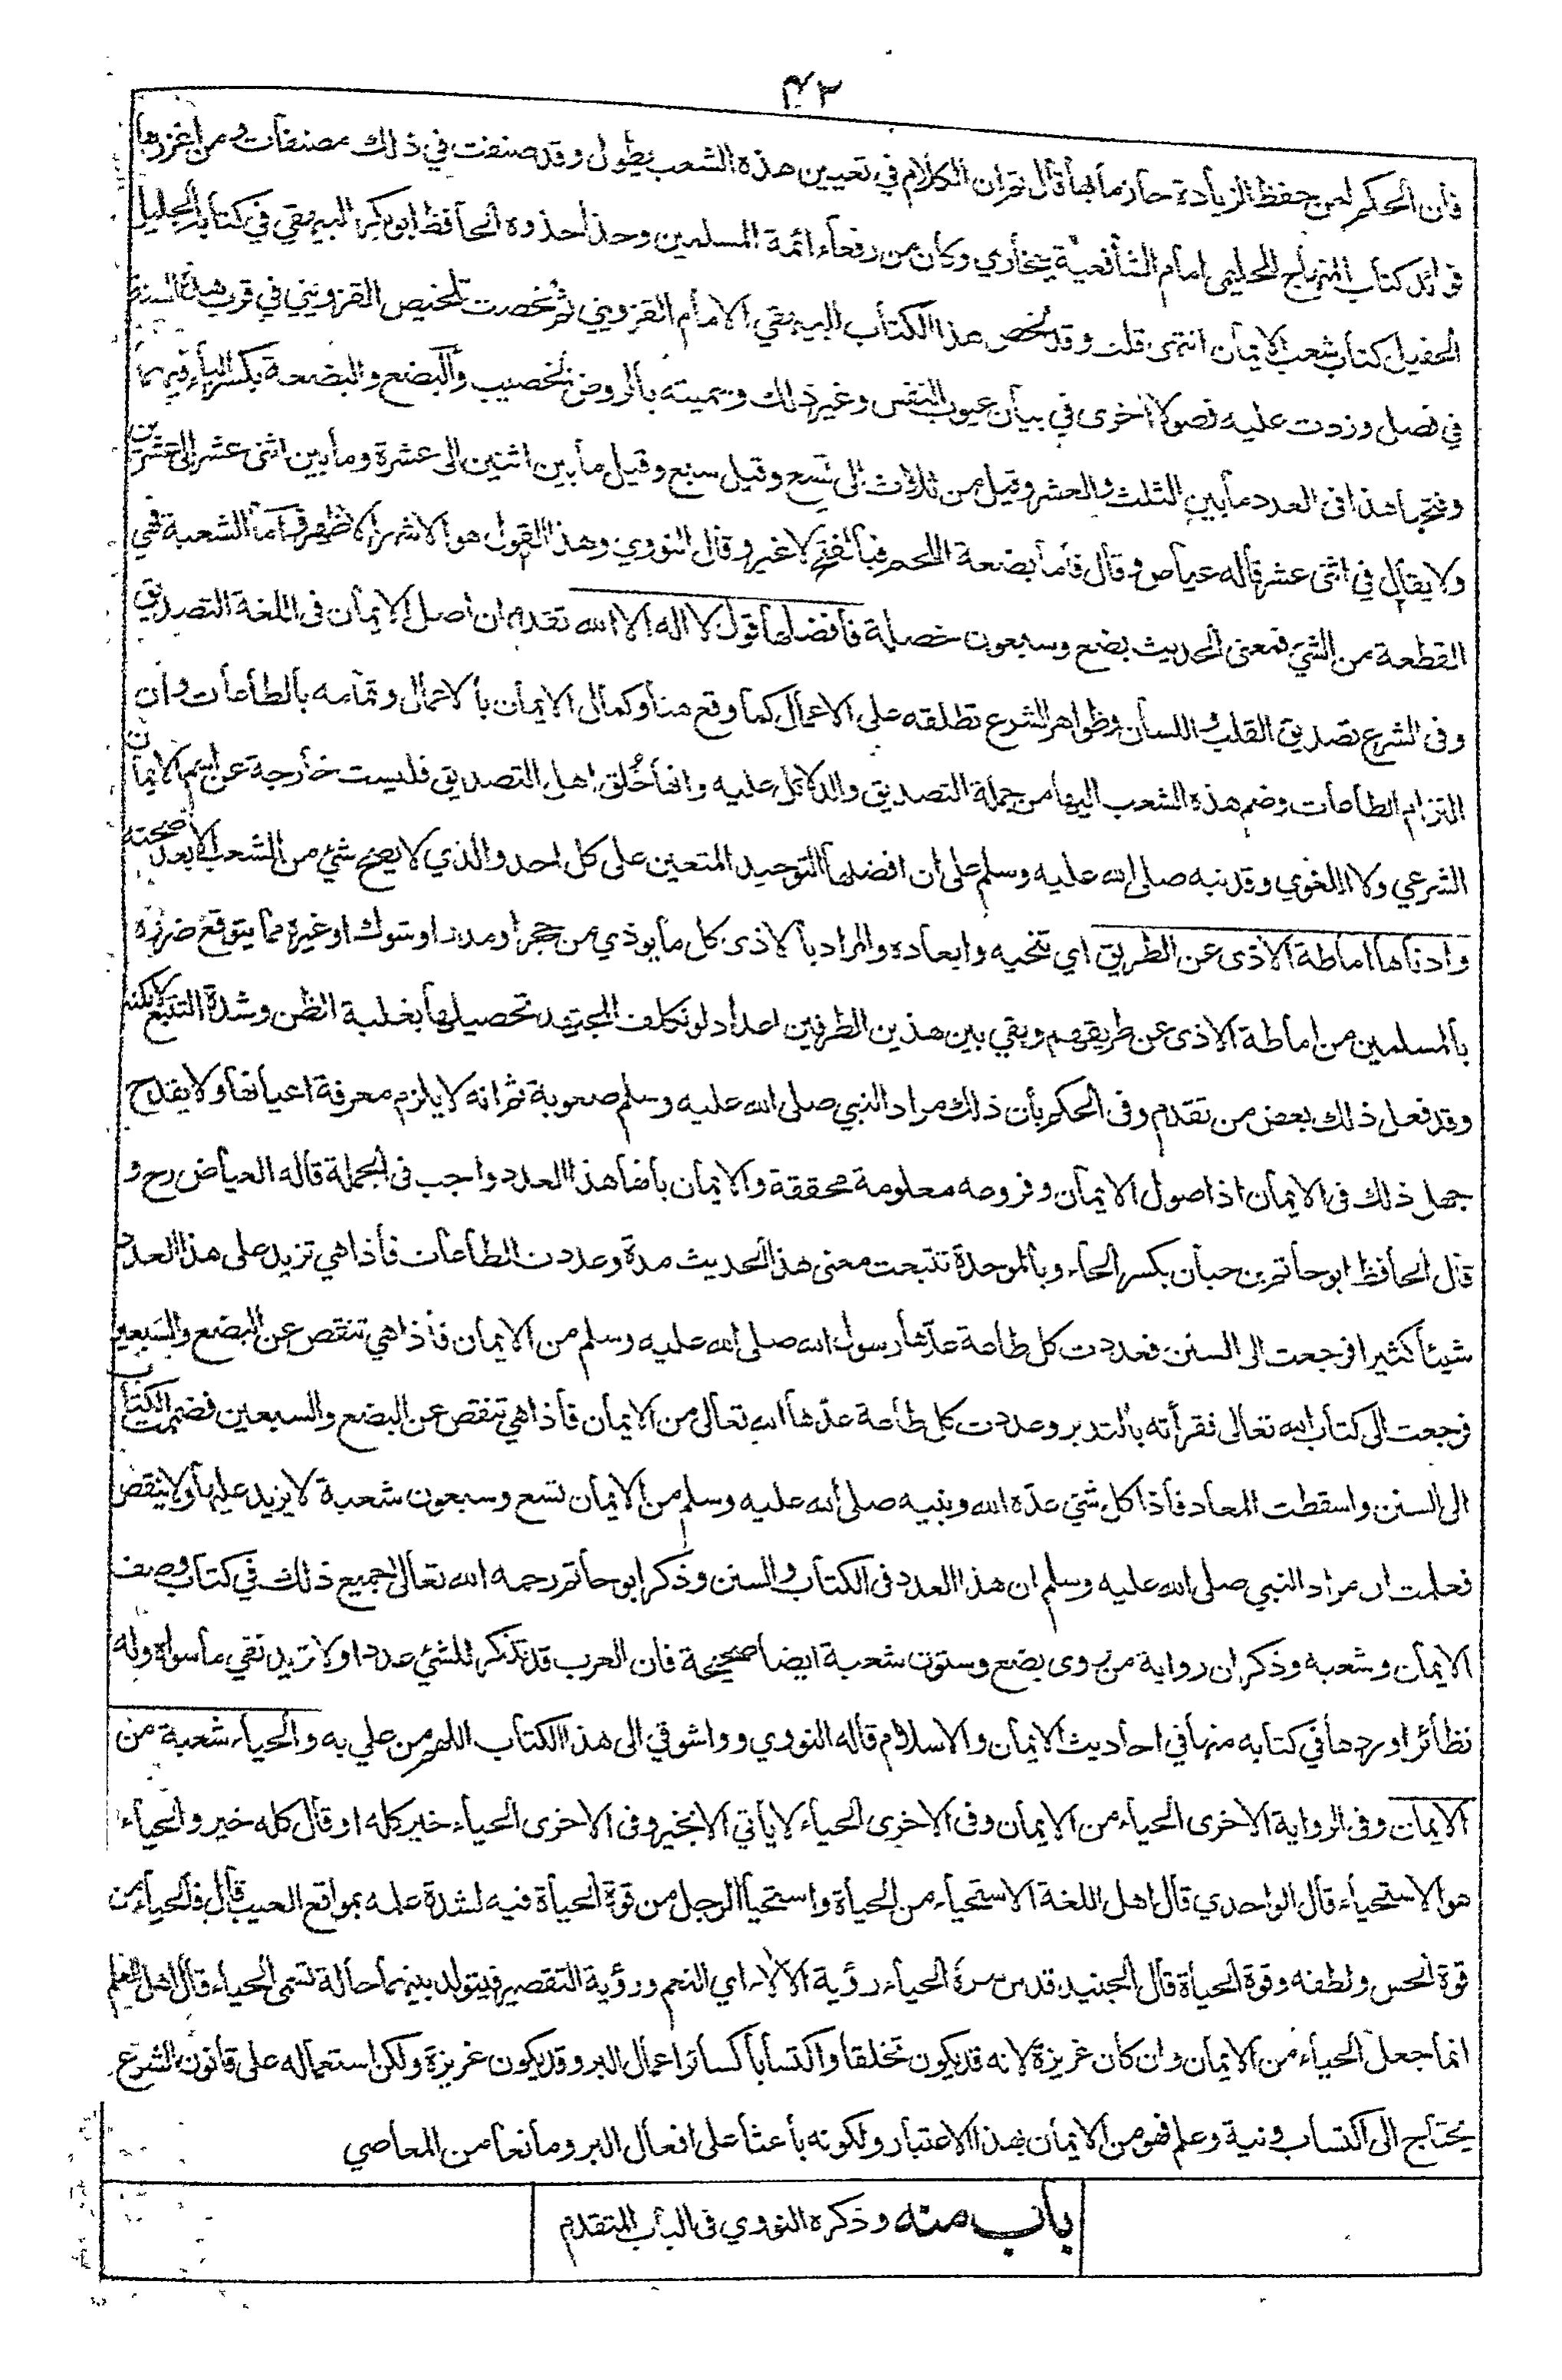 ٤٣
فان الحكم لمن حفظ الزيادة جازما بها قال ثم ان الكلام في تعيين هذه الشعب يطول وقد صنفت في ذلك مصنفات ومن اغزرها
فوائد كتاب المنهاج للحليمي امام الشافعية ببخاري وكان من رفعاء ائمة المسلمين وحذا حذوه الحافظ ابو بكر البيهقي في كتابه الجليل
الحفيل كتاب شعب الايمان انتهى قلت وقد لخص هذا الكتاب البيهقي الامام القزويني ثم لخصت تلخيص القزويني في قرب هذه السنة
في فصل وزدت عليه فصولا اخرى في بيان عيوب النفس وغير ذلك وسميته بالروض الخصيب والبضع والبضعة بكسر الباء فيهما
وفتحها هذا فى العدد ما بين الثلث والعشر وقيل من ثلاث الى تسع وقيل سبع وقيل ما بين اثنين الى عشرة وما بين اثنى عشر الى عشرين
ولا يقال في اثنى عشر قاله عياض وقال فاما بضعة اللحم فبالفتح لا غير وقال النووي وهذا القول هو الاشهر الاظهر قاما الشعبة فهي
القطعة من الشئ فمعنى الحديث بضع وسبعون خصلة فافضلها قول لا اله الا الله تقدم ان اصل الايمان فى اللغة التصديق
وفى الشرع تصديق القلب واللسان وظواهر الشرع تطلقه على الاعمال كما وقع هنا وكمال الايمان بالاعمال وتمامه بالطاعات وان
التزام الطاعات وضم هذه الشعب اليها من جملة التصديق والدلائل عليه وانها خُلق اهل التصديق فليست خارجة عن اسم الايمان
الشرعي ولا اللغوي وقد نبه صلى الله عليه وسلم على ان افضلها التوحيد المتعين على كل احد والذي لا يصح شئ من الشعب الا بعد صحته
وادناها اماطة الاذى عن الطريق اي تنحيه وابعاده والمراد بالاذى كل ما يوذي من حجر او مدر او شوك او غيره مما يتوقع ضرره
بالمسلمين من اماطة الاذى عن طريقهم وبقي بين هذين الطرفين اعداد لو تكلف المجتهد تحصيلها بغلبة الظن وشدة التتبع لامكنه
وقد فعل ذلك بعض من تقدم وفى الحكم بان ذلك مراد النبي صلى الله عليه وسلم صعوبة ثم انه لا يلزم معرفة اعيانها ولا يقدح
جهل ذلك فى الايمان اذ اصول الايمان وفروعه معلومة محققة والايمان بانها هذا العدد واجب فى الجملة قاله العياض رح و
قال الحافظ ابو حاتم بن حبان بكسر الحاء وبالموحدة تتبعت معنى هذا الحديث مدة وعددت الطاعات فاذا هي تزيد على هذا العدد
شيئا كثيرا فرجعت الى السنن فعددت كل طاعة عدّها رسول الله صلى الله عليه وسلم من الايمان فاذا هي تنقص عن البضع والسبعين
فرجعت الى كتاب الله تعالى فقرأته بالتدبر وعددت كل طاعة عدّها الله تعالى من الايمان فاذا هي تنقص عن البضع والسبعين فضممت الكتاب
الى السنن واسقطت المعاد فاذا كل شئ عدّه الله ونبيه صلى الله عليه وسلم من الايمان تسع وسبعون شعبة لا يزيد عليها ولا ينقص
فعلمت ان مراد النبي صلى الله عليه وسلم ان هذا العدد فى الكتاب والسنن وذكر ابو حاتم رحمه الله تعالى جميع ذلك في كتاب وصف
الايمان وشعبه وذكر ان رواية من روى بضع وستون شعبة ايضا صحيحة فان العرب قد تذكر للشئ عددا ولا تريد نفي ما سواه وله
نظائر اوردها في كتابه منها في احاديث الايمان والاسلام قاله النووي وواشوقي الى هذا الكتاب اللهم من علي به والحياء شعبة من
الايمان وفى الرواية الاخرى الحياء من الايمان وفى الاخرى الحياء لا يأتي الا بخير وفى الاخرى الحياء خير كله او قال كله خير والحياء
هو الاستحياء قال الواحدي قال اهل اللغة الاستحياء من الحياة واستحيا الرجل من قوة الحياة فيه لشدة علمه بمواقع العيب قال فالحياء من
قوة الحس ولطفه وقوة الحياة قال الجنيد قدس سرّه الحياء رؤية الالاء اي النعم ورؤية التقصير فيتولد بينهما حالة تسمى الحياء قال اهل العلم
انما جعل الحياء من الايمان وان كان غريزة لانه قد يكون تخلقا واكتسابا كسائر اعمال البر وقد يكون غريزة ولكن استعماله على قانون الشرع
يحتاج الى اكتساب ونية وعلم فهو من الايمان بهذا الاعتبار ولكونه باعثا على افعال البر ومانعا من المعاصي
باب منه وذكره النووي فى الباب المتقدم